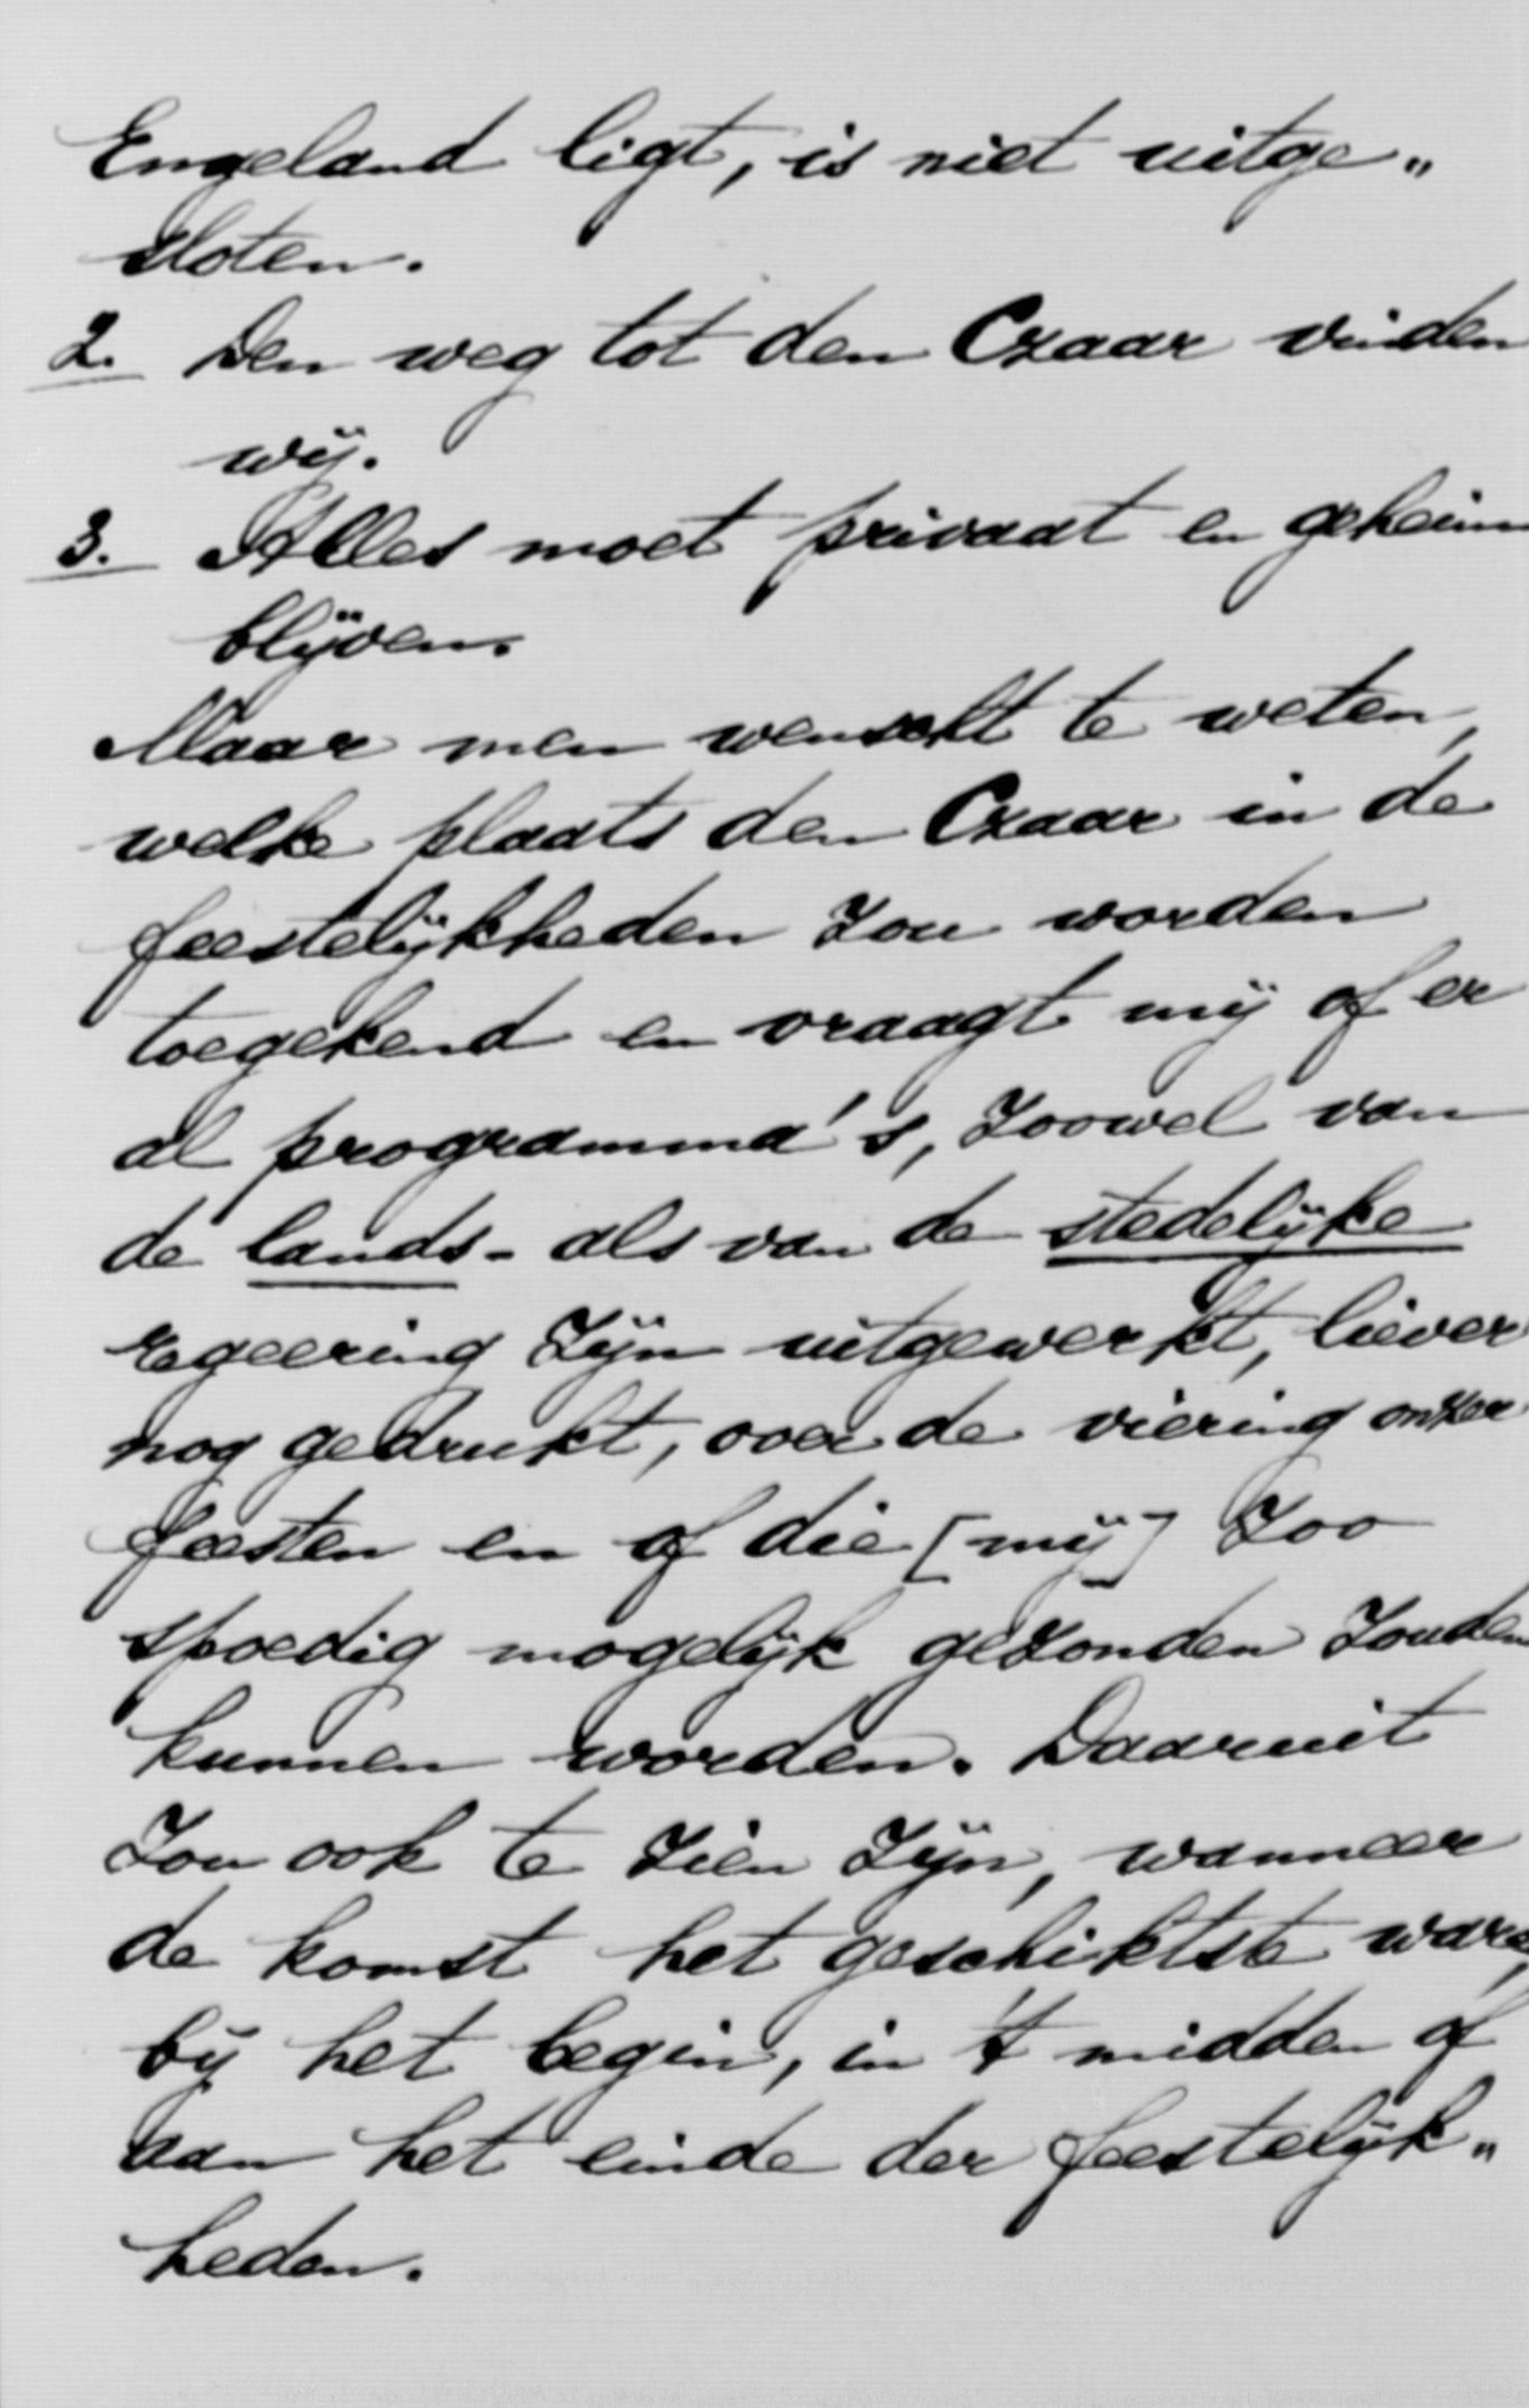 Engeland ligt, is niet uitge„
sloten.
2. Den weg tot den Czaar vinden
wij.
3. Alles moet privaat en geheim
blijven.
Maar men wenscht te weten,
welke plaats den Czaar in de
feestelijkheden zou worden
toegekend en vraagt mij of er
al programma's, zoowel van
de lands- als van de stedelijke
regeering zijn uitgewerkt, liever
nog gedrukt, over de viering onzer
feesten en of die [mij] zoo
spoedig mogelijk gezonden zouden
kunnen worden. Daaruit
zou ook te zien zijn, wanneer
de komst het geschiktste ware,
bij het begin, in 't midden of
aan het einde der feestelijk„
heden.